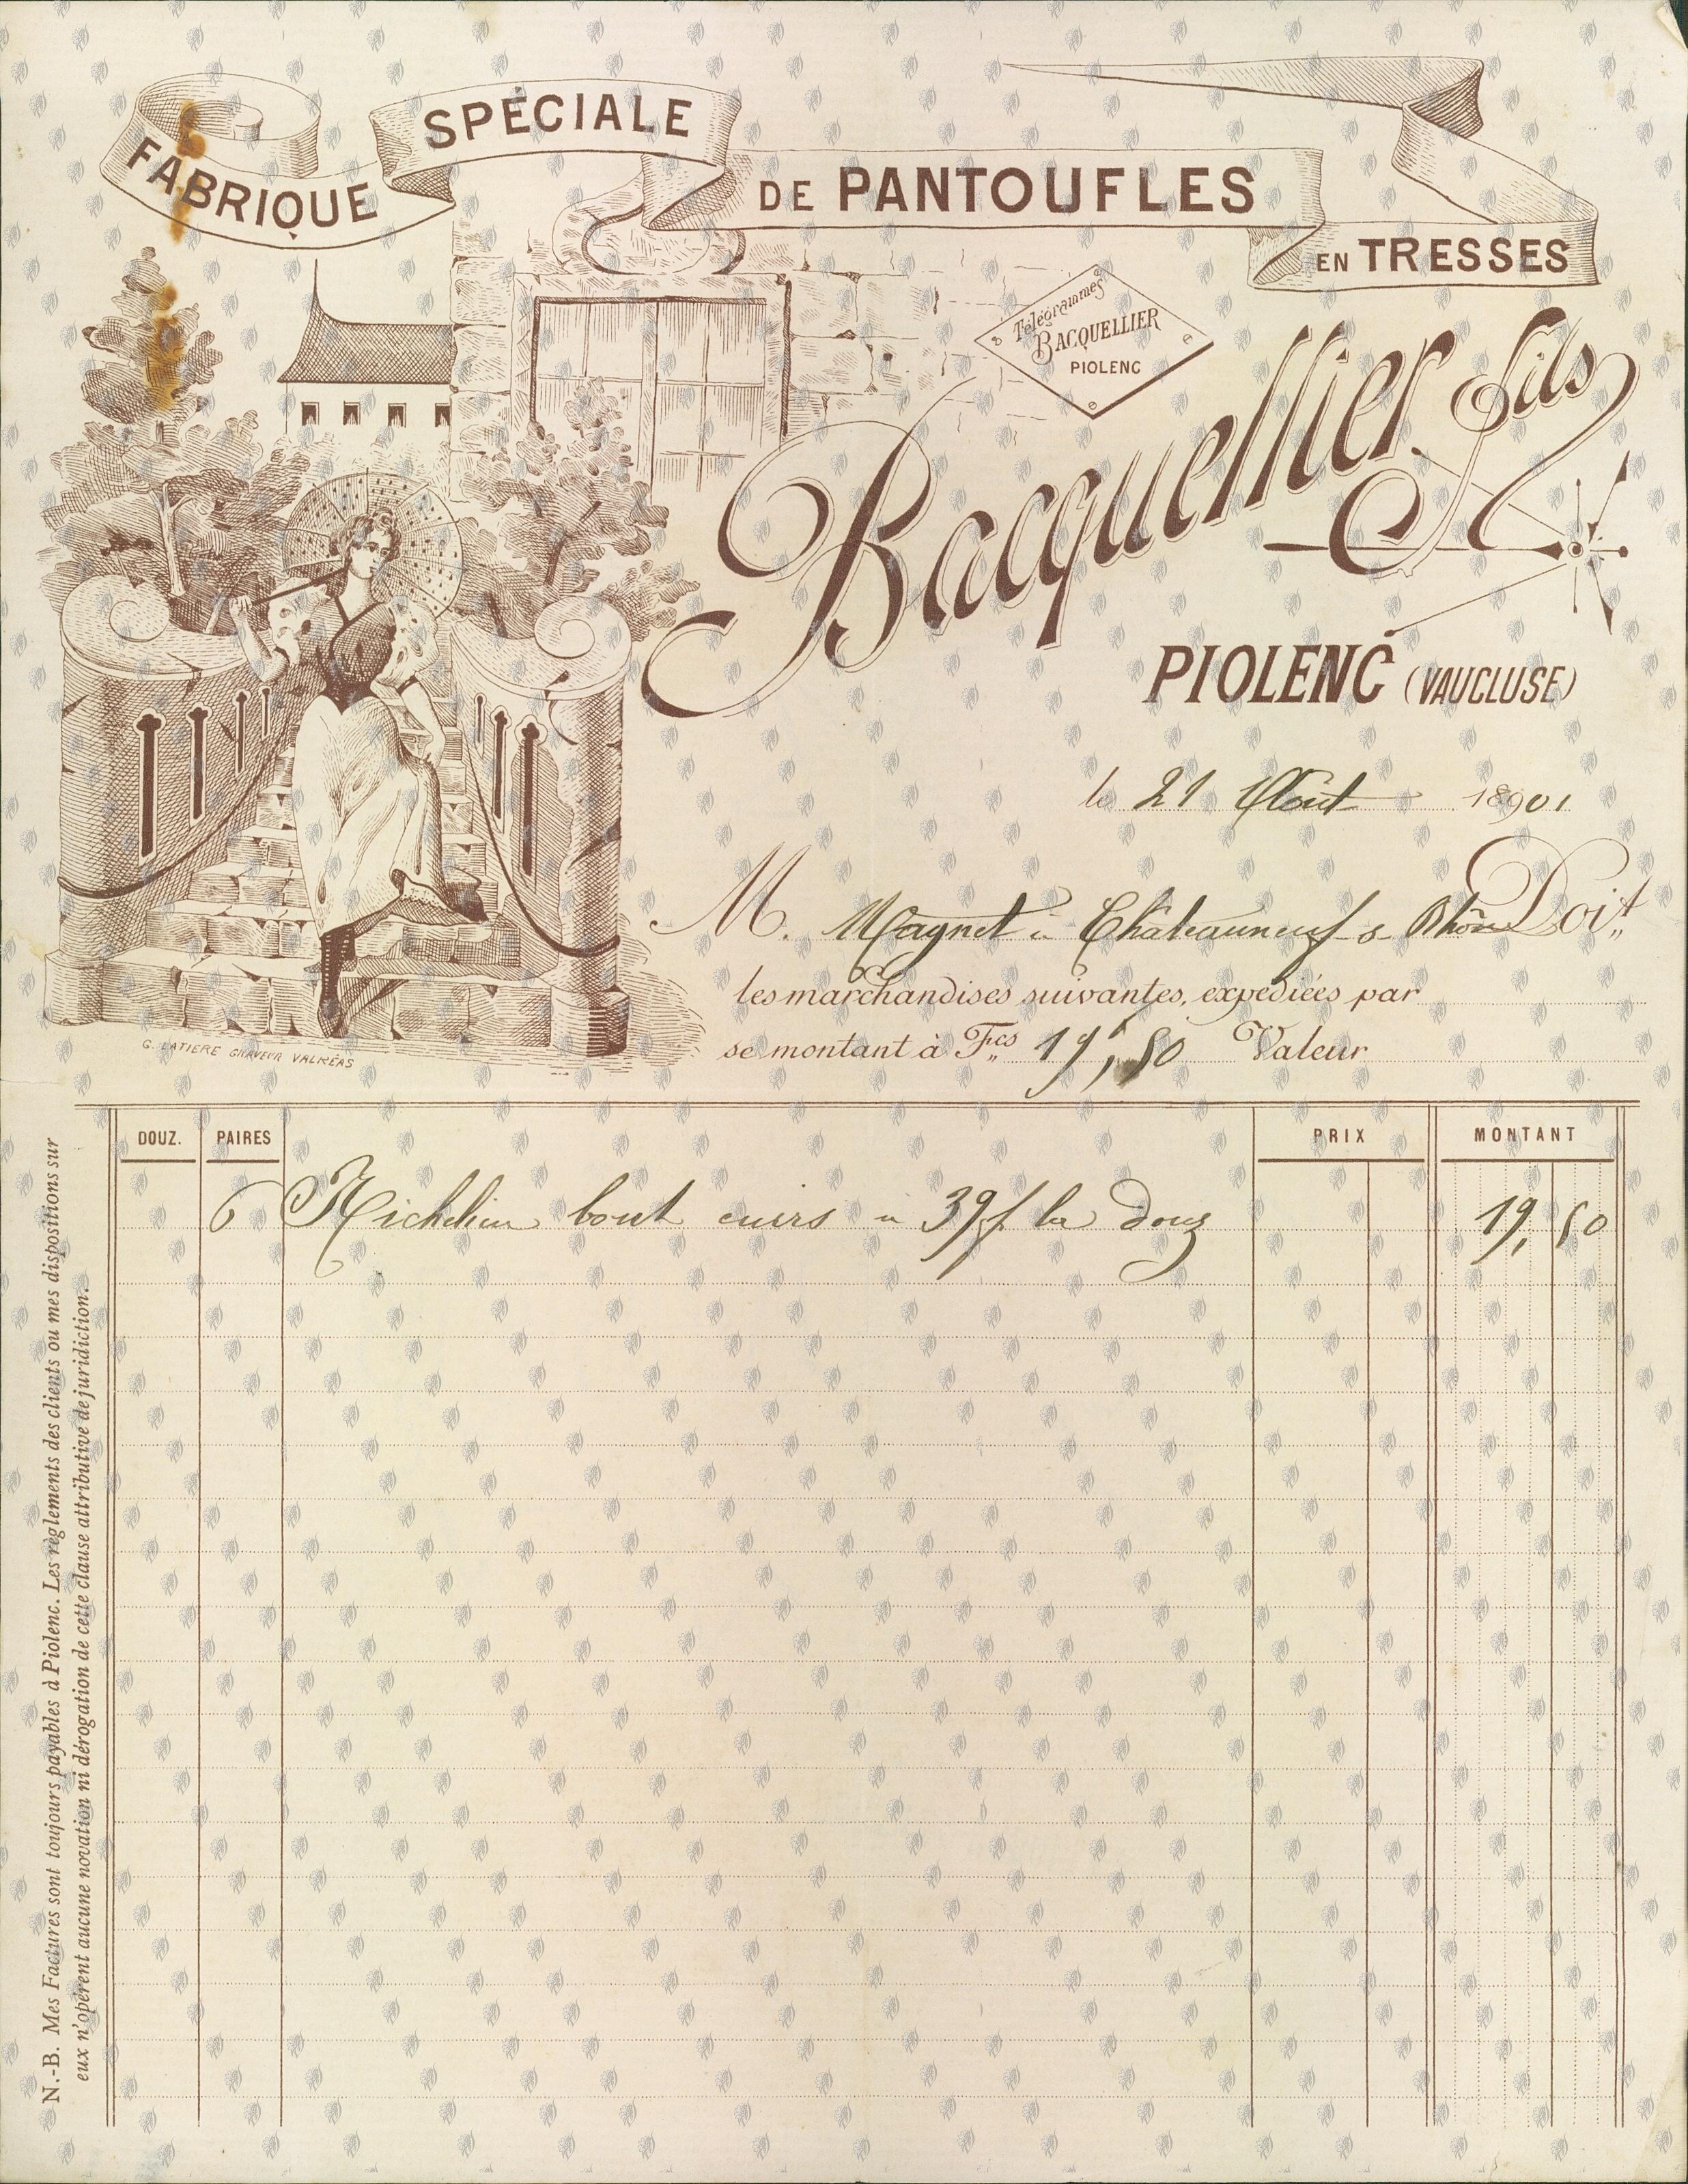 FABRIQUE SPÉCIALE DE PANTOUFLES EN TRESSES
Télégrammes
BACQUELLIER
PIOLENC
Bacquellier Fils
PIOLENC (VAUCLUSE)
le 21 Août 18901
M. Magnet à Châteauneuf s Rhône Doit
les marchandises suivantes, expédiées par
se montant à Fcs 19,50 Valeur
G. LATIERE GRAVEUR VALRÉAS
DOUZ. PAIRES PRIX MONTANT
6 bout cuirs à 39f la douz 19,50
N.-B. Mes Factures sont toujours payables à Piolenc. Les règlements des clients ou mes dispositions sur
eux n'opèrent aucune novation ni dérogation de cette clause attributive de juridiction.